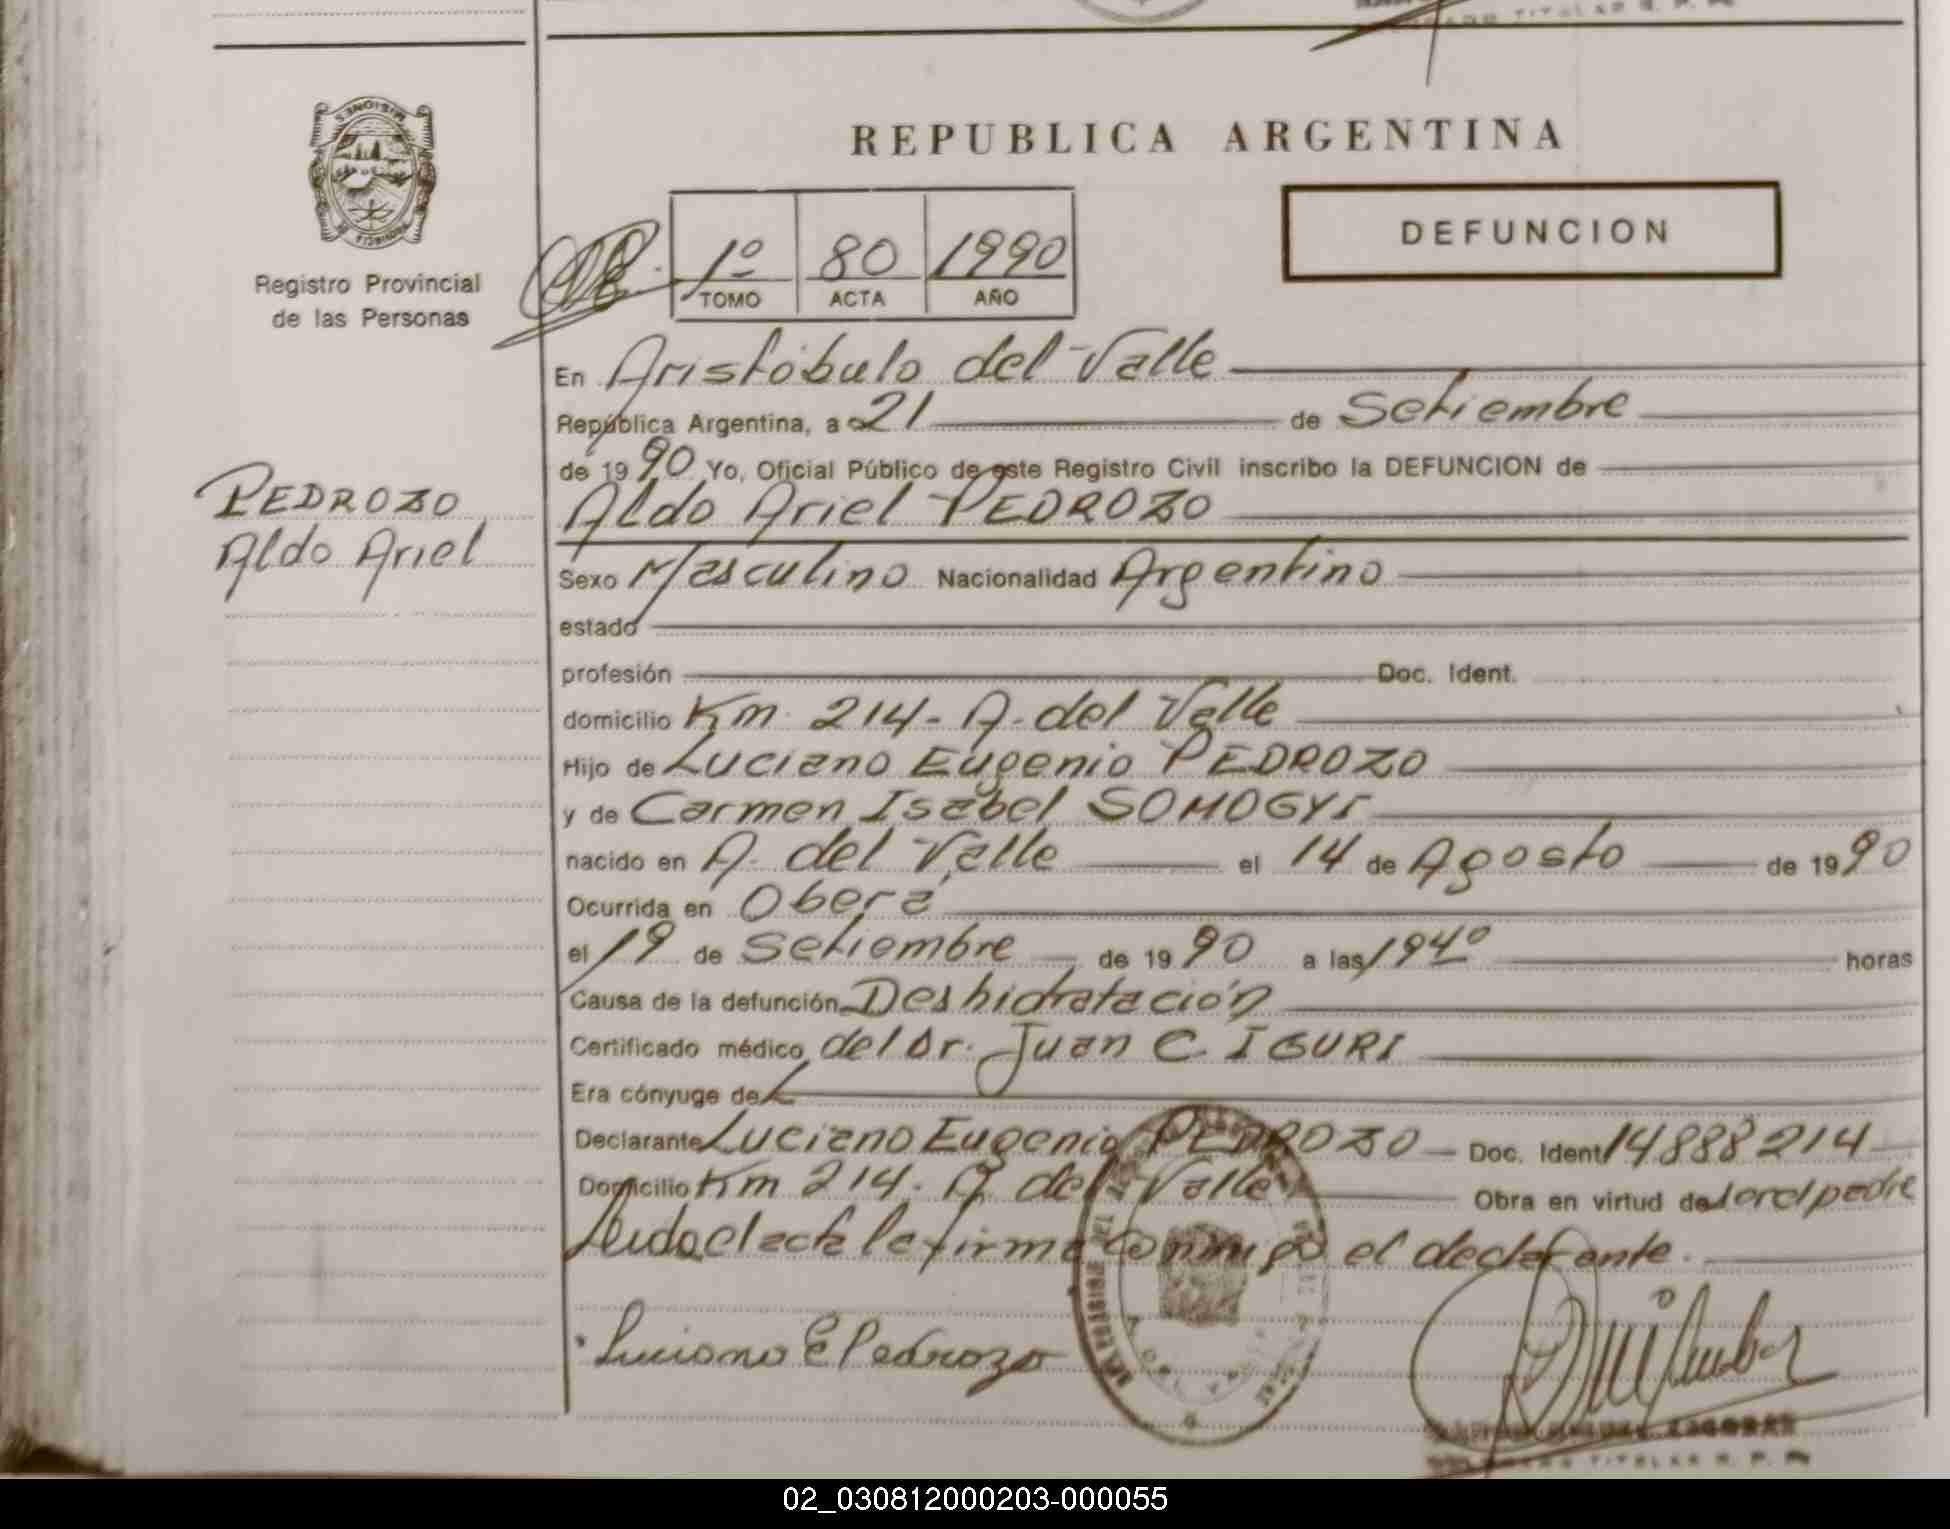 REPUBLICA ARGENTINA
MISIONES
PROVINCIA DE
Registro Provincial
de las Personas
1º 80 1990
TOMO ACTA AÑO
DEFUNCION
En Aristóbulo del Valle
República Argentina, a 21 de Setiembre
de 1990 Yo, Oficial Público de este Registro Civil inscribo la DEFUNCION de
PEDROZO
Aldo Ariel
Aldo Ariel PEDROZO
Sexo Masculino Nacionalidad Argentino
estado
profesión Doc. Ident.
domicilio Km. 214 - A. del Valle
Hijo de Luciano Eugenio PEDROZO
y de Carmen Isabel SOMOGYI
nacido en A. del Valle el 14 de Agosto de 1990
Ocurrida en Oberá
el 19 de Setiembre de 1990 a las 19 40 horas
Causa de la defunción Deshidratación
Certificado médico del Dr. Juan C. IGURI
Era cónyuge de
Declarante Luciano Eugenio PEDROZO Doc. Ident 14888214
Domicilio Km 214. A. del Valle Obra en virtud de ser el padre
Leida el acta la firma conmigo el declarante.
Luciano E Pedrozo
ESCOBAR
TITULAR R. P. P.
02_030812000203-000055